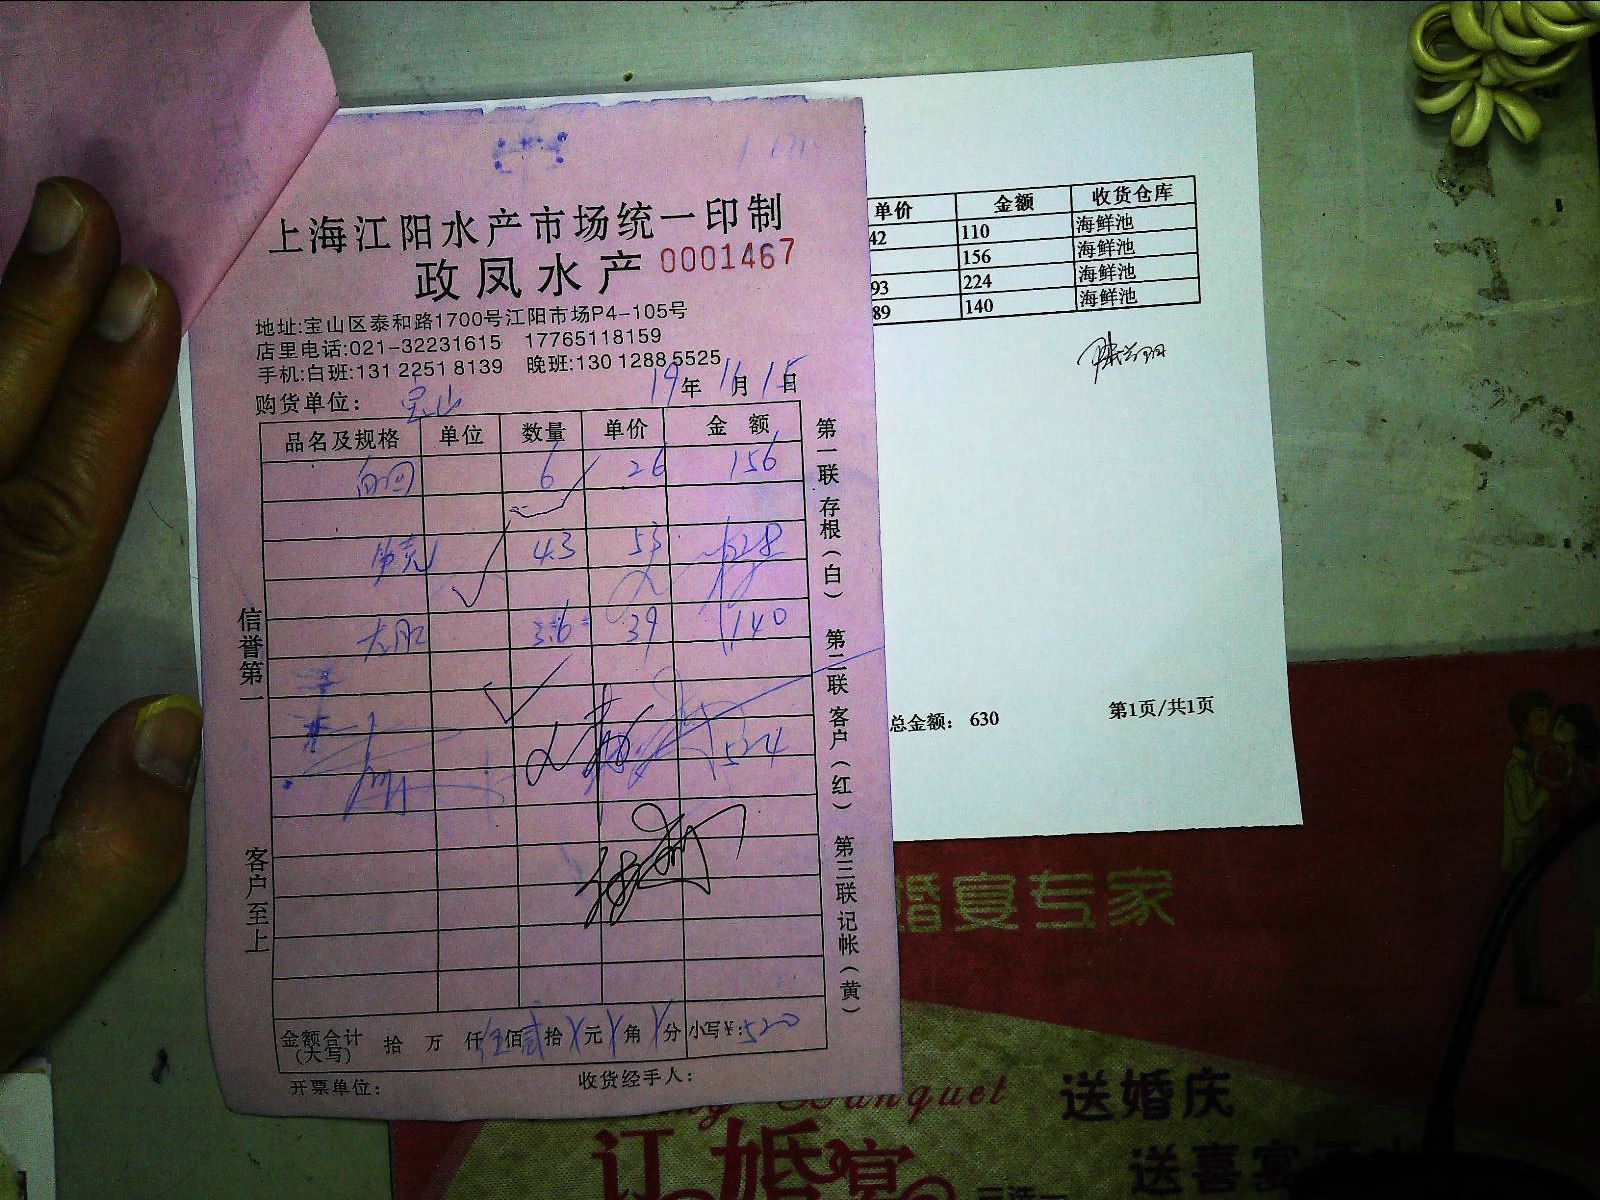 上海江阳水产市场统一印制
政凤水产 0001467
地址:宝山区泰和路1700号江阳市场P4-105号
店里电话:021-32231615 17765118159
手机:白班:131 2251 8139 晚班:130 1288 5525
19年11月15日
购货单位: 宝山
品名及规格 单位 数量 单价 金额
6 26 156
43 53 228
3.6 39 140
524
金额合计(大写) 拾 万 仟 伍佰 贰拾 元 角 分 小写¥:520
开票单位: 收货经手人:
信誉第一
客户至上
第一联存根(白) 第二联客户(红) 第三联记帐(黄)
单价 金额 收货仓库
42 110 海鲜池
156 海鲜池
93 224 海鲜池
89 140 海鲜池
总金额: 630 第1页/共1页
婚宴专家
Banquet
送婚庆
订婚宴
送喜宴